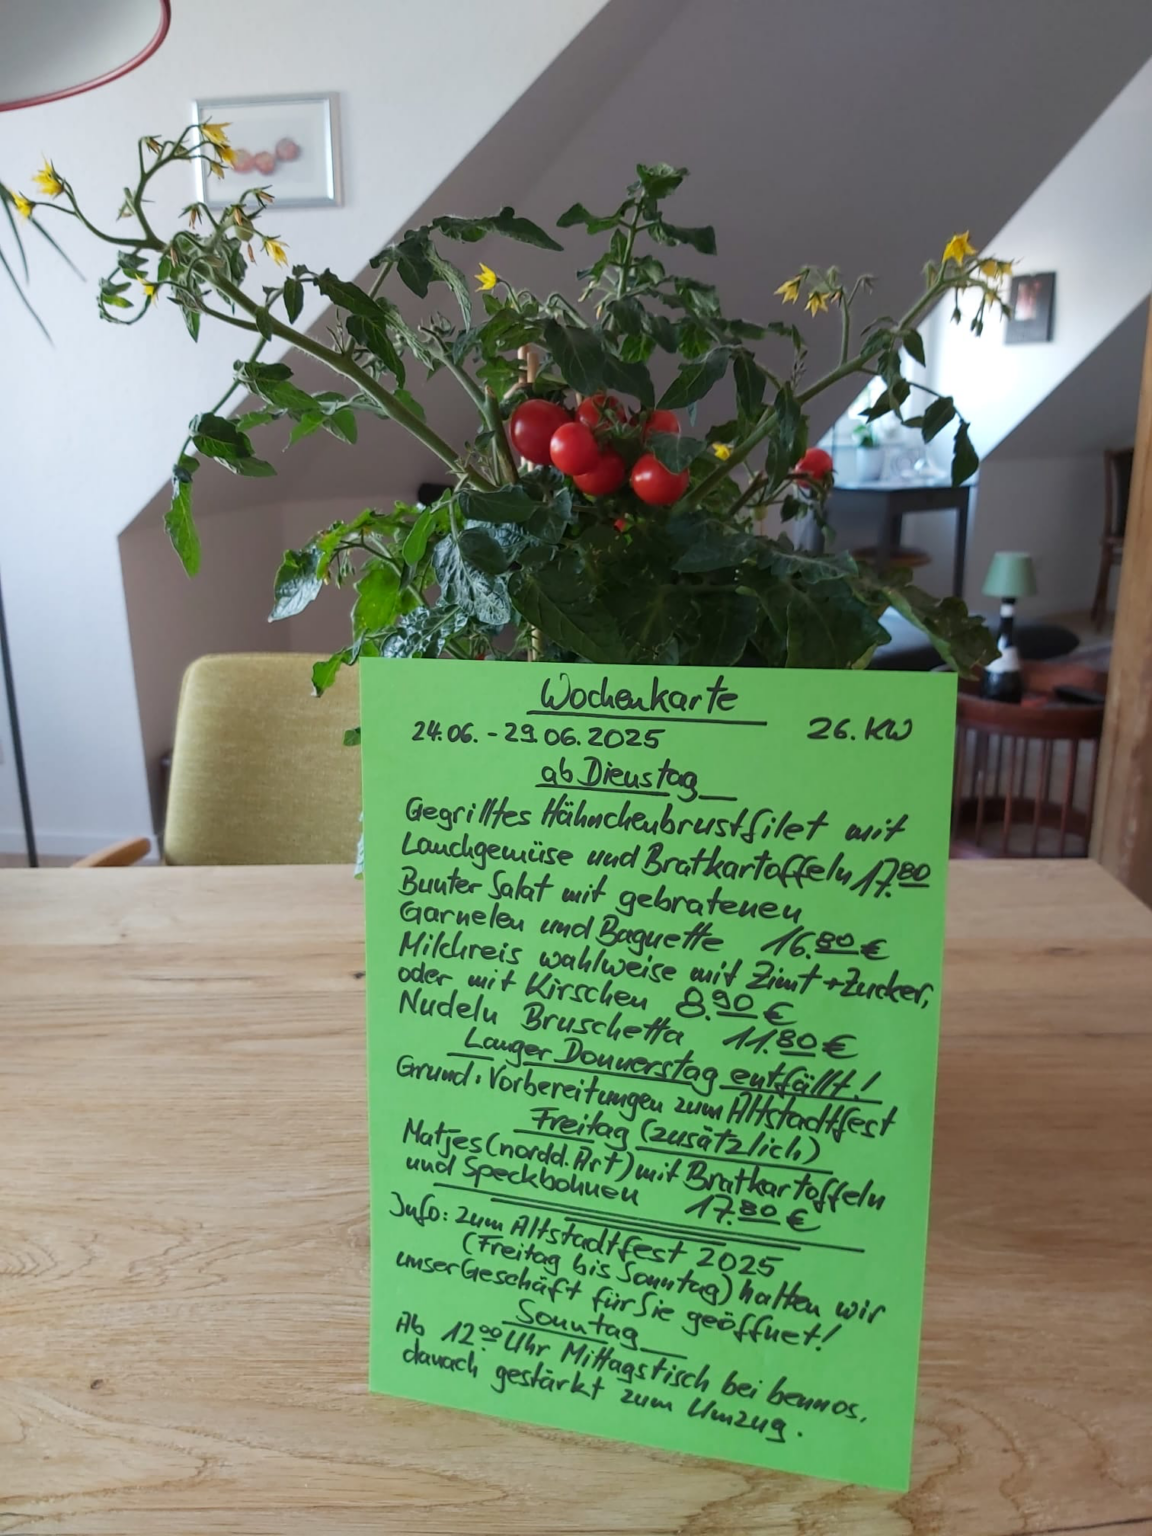 Wochenkarte
24.06. - 29.06.2025 26. KW
ab Dienstag
Gegrilltes Hähnchenbrustfilet mit
Lauchgemüse und Bratkartoffeln 17.80
Bunter Salat mit gebratenen
Garnelen und Baguette 16.80 €
Milchreis wahlweise mit Zimt + Zucker,
oder mit Kirschen 8.90 €
Nudeln Bruschetta 11.80 €
Langer Donnerstag entfällt!
Grund: Vorbereitungen zum Altstadtfest
Freitag (zusätzlich)
Matjes (nordd. Art) mit Bratkartoffeln
und Speckbohnen 17.80 €
Info: Zum Altstadtfest 2025
(Freitag bis Sonntag) halten wir
unser Geschäft für Sie geöffnet!
Sonntag
Ab 12.00 Uhr Mittagstisch bei bennos,
danach gestärkt zum Umzug.